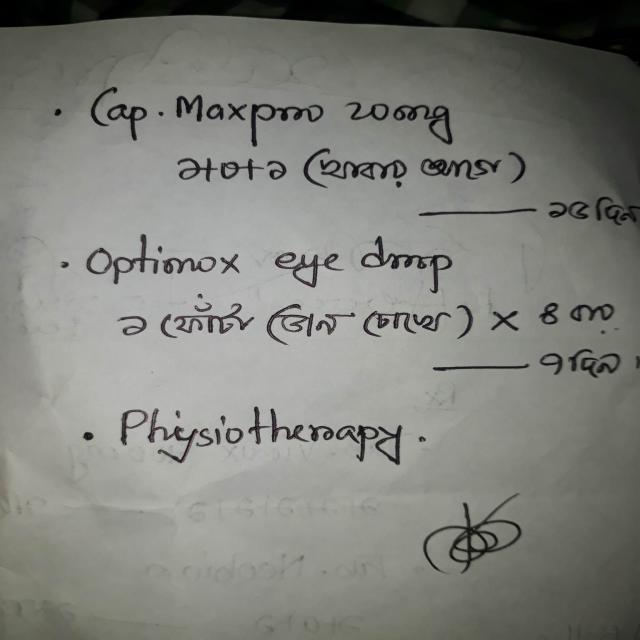 • Cap. Maxpro 20mg
১+০+১ (খাবার আগে)
——— ১৫ দিন
• Optimox eye drop
১ ফোঁটা (ডান চোখে) × ৪ বার
——— ৭ দিন
• Physiotherapy.